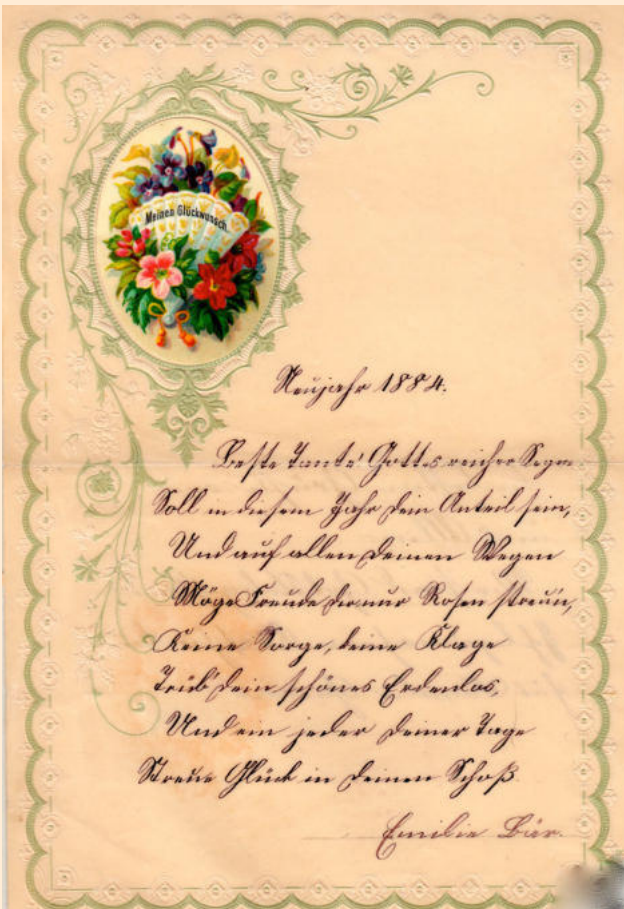 Meinen Glückwunsch.
Neujahr 1884.
Beste Tante! Gottes reicher Segen
Soll in diesem Jahr Dein Anteil sein,
Und auf allen Deinen Wegen
Möge Freude Dir nur Rosen streun,
Keine Sorge, keine Klage
Trüb' Dein schönes Erdenlos,
Und ein jeder Deiner Tage
Streue Glück in Deinen Schoß.
Emilie Bär.